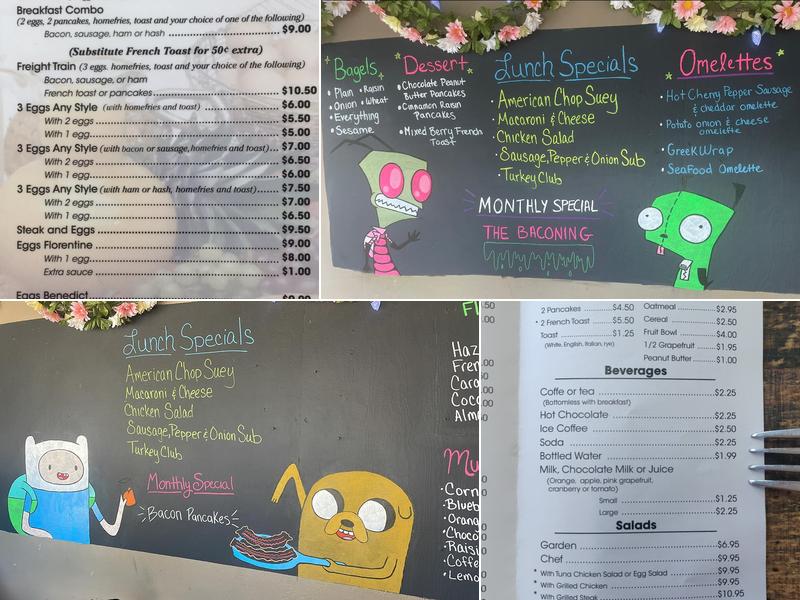 Breakfast Combo
(2 eggs, 2 pancakes, homefries, toast and your choice of one of the following)
Bacon, sausage, ham or hash ........ $9.00
(Substitute French Toast for 50¢ extra)
Freight Train (3 eggs. homefries, toast and your choice of the following)
Bacon, sausage, or ham
French toast or pancakes ........ $10.50
3 Eggs Any Style (with homefries and toast) ........ $6.00
With 2 eggs ........ $5.50
With 1 egg ........ $5.00
3 Eggs Any Style (with bacon or sausage, homefries and toast)... $7.00
With 2 eggs ........ $6.50
With 1 egg ........ $6.00
3 Eggs Any Style (with ham or hash, homefries and toast)...... $7.50
With 2 eggs ........ $7.00
With 1 egg ........ $6.50
Steak and Eggs ........ $9.50
Eggs Florentine ........ $9.00
With 1 egg ........ $8.00
Extra sauce ........ $1.00
Eggs Benedict
Bagels
• Plan • Raisin
• Onion • Wheat
• Everything
• Sesame
Dessert
• Chocolate Peanut
Butter Pancakes
• Cinnamon Raisin
Pancakes
• Mixed Berry French
Toast
Lunch Specials
• American Chop Suey
• Macaroni & Cheese
• Chicken Salad
• Sausage, Pepper & Onion Sub
• Turkey Club
MONTHLY SPECIAL
THE BACONING
Omelettes
• Hot Cherry Pepper Sausage
& cheddar omelette
• Potato onion & cheese
omelette
• Greek Wrap
• SeaFood Omelette
Lunch Specials
American Chop Suey
Macaroni & Cheese
Chicken Salad
Sausage, Pepper & Onion Sub
Turkey Club
Monthly Special
Bacon Pancakes
Fl
Haz
Fren
Cara
Coco
Alm
Mu
• Corn
• Blueb
• Orang
• Choco
• Raisi
• Coffe
• Lemo
.50
.00
2 Pancakes ........ $4.50
• 2 French Toast ........ $5.50
Toast ........ $1.25
(White, English, Italian, rye)
Oatmeal ........ $2.95
Cereal ........ $2.50
Fruit Bowl ........ $4.00
1/2 Grapefruit ........ $1.95
Peanut Butter ........ $1.00
Beverages
Coffe or tea ........ $2.25
(Bottomless with breakfast)
Hot Chocolate ........ $2.25
Ice Coffee ........ $2.50
Soda ........ $2.25
Bottled Water ........ $1.99
Milk, Chocolate Milk or Juice
(Orange, apple, pink grapefruit,
cranberry or tomato)
Small ........ $1.25
Large ........ $2.25
Salads
Garden ........ $6.95
Chef ........ $9.95
• With Tuna Chicken Salad or Egg Salad ........ $9.95
• With Grilled Chicken ........ $9.95
• With Grilled Steak ........ $10.95